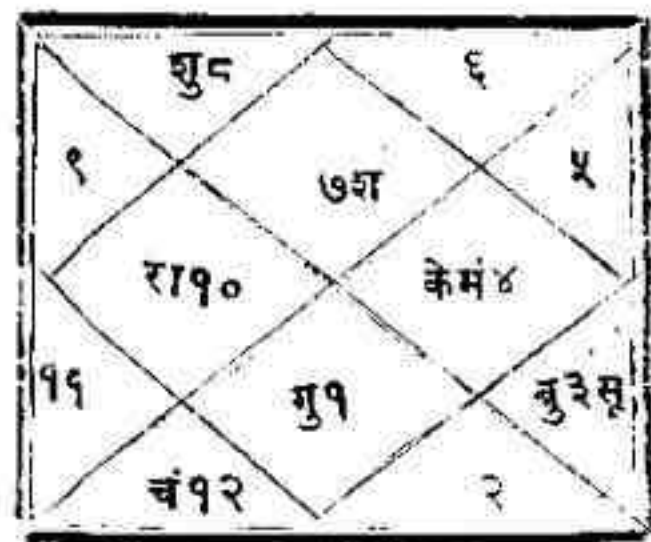 शु८ ६
९ ७श ५
रा१० केमं४
११ गु१ बु३सू
चं१२ २